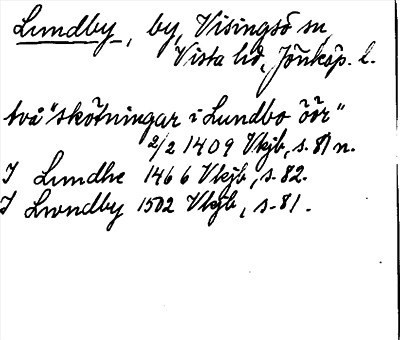 Lundby, by, Visingsö sn,
Vista hd, Jönköp. l.
två "skötningar i Lundbo öör"
2/2 1409 Vkjb, s. 81 n.
J Lundhe 1466 Vkjb, s. 82.
J Lwndby 1502 Vkjb, s. 81.